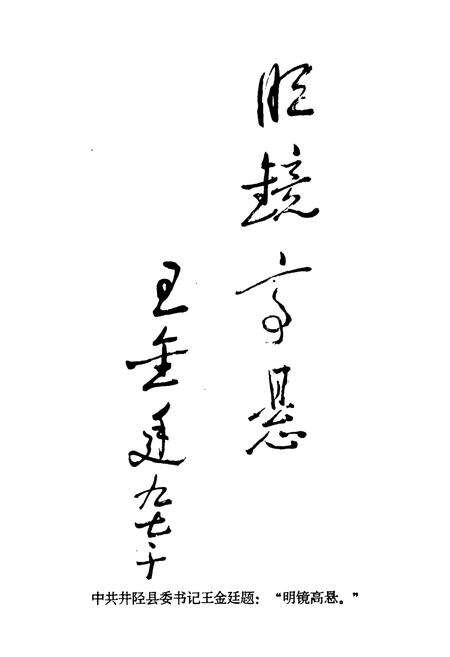 明镜高悬
王金廷
九七.二.十
中共井陉县委书记王金廷题：“明镜高悬。”